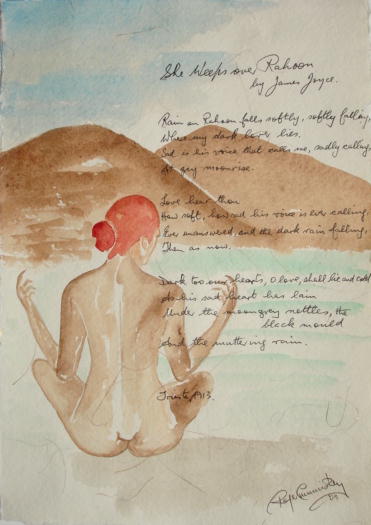 She Weeps over Rahoon
by James Joyce.
Rain on Rahoon falls softly, softly falling,
Where my dark lover lies.
Sad is his voice that calls me, sadly calling,
At grey moonrise.
Love hear thou
How soft, how sad his voice is ever calling,
Ever unanswered, and the dark rain falling,
Then as now.
Dark too our hearts, O love, shall lie and cold
As his sad heart has lain
Under the moongrey nettles, the
black mould
And the muttering rain.
Trieste 1913.